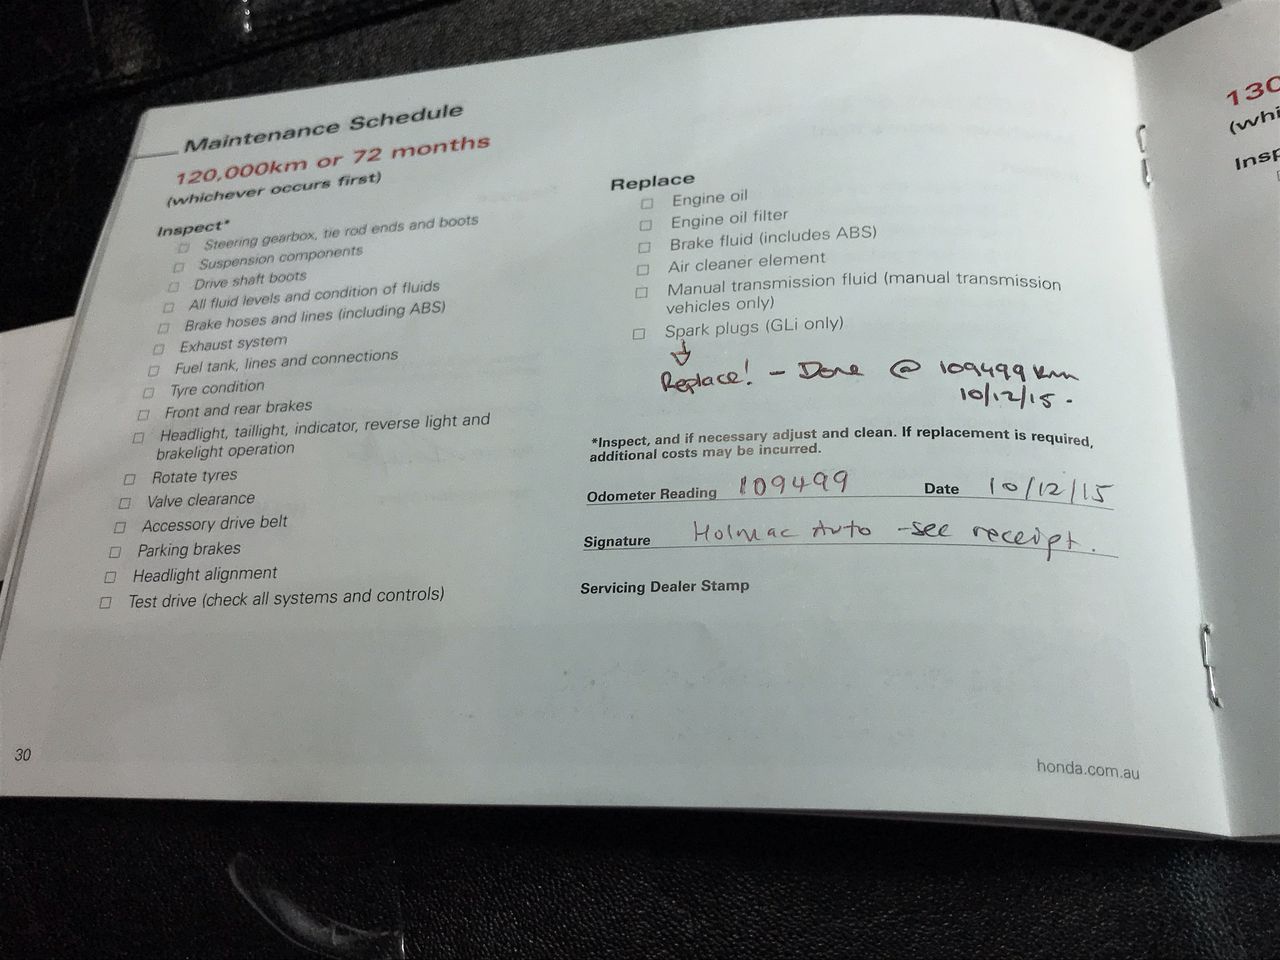 Maintenance Schedule
120,000km or 72 months
(whichever occurs first)
Inspect*
Steering gearbox, tie rod ends and boots
Suspension components
Drive shaft boots
All fluid levels and condition of fluids
Brake hoses and lines (including ABS)
Exhaust system
Fuel tank, lines and connections
Tyre condition
Front and rear brakes
Headlight, taillight, indicator, reverse light and
brakelight operation
Rotate tyres
Valve clearance
Accessory drive belt
Parking brakes
Headlight alignment
Test drive (check all systems and controls)
Replace
Engine oil
Engine oil filter
Brake fluid (includes ABS)
Air cleaner element
Manual transmission fluid (manual transmission
vehicles only)
Spark plugs (GLi only)
Replace! - Done @ 109499 km
10/12/15.
*Inspect, and if necessary adjust and clean. If replacement is required,
additional costs may be incurred.
Odometer Reading 109499 Date 10/12/15
Signature Holmac Auto - see receipt.
Servicing Dealer Stamp
30
honda.com.au
130
(whi
Insp